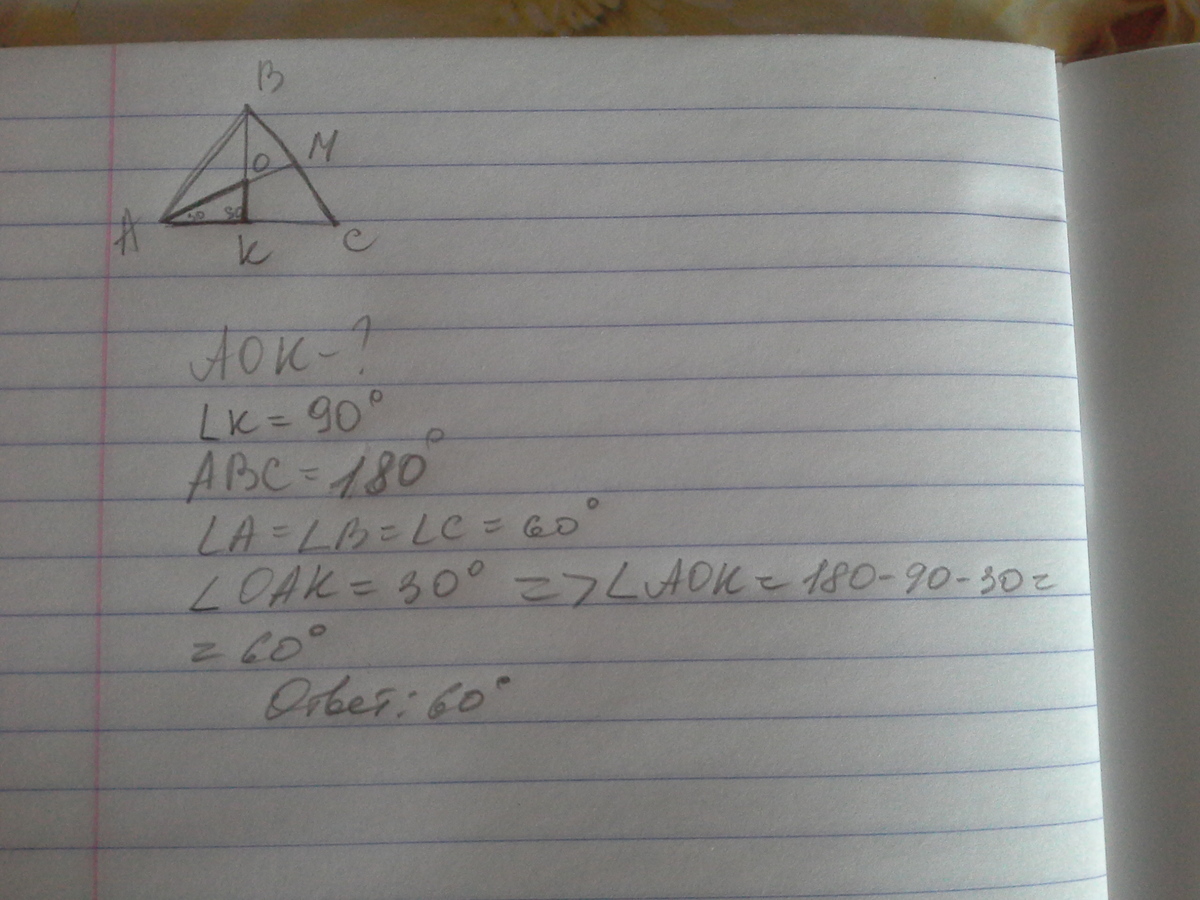 B
O M
A 30 90 K C
AOK - ?
∠K = 90°
ABC = 180°
∠A = ∠B = ∠C = 60°
∠OAK = 30° => ∠AOK = 180 - 90 - 30 =
= 60°
Ответ: 60°